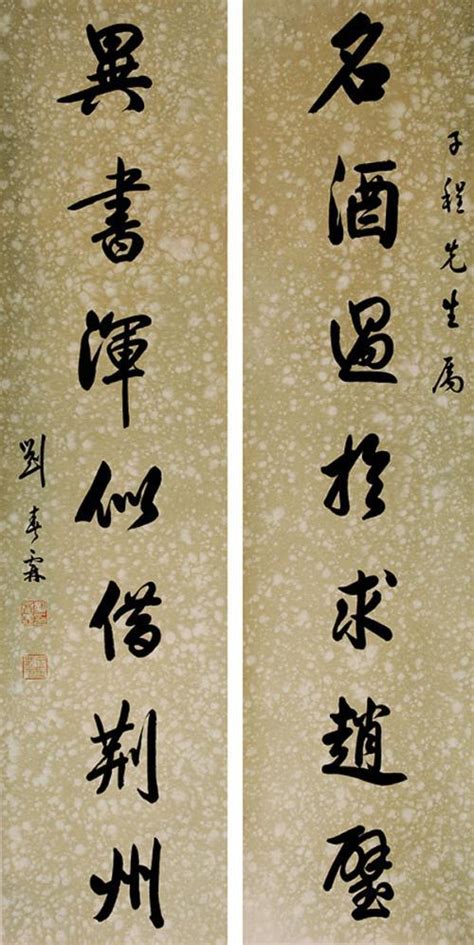 子程先生属
名酒過於求趙璧
異書渾似借荆州
劉春霖